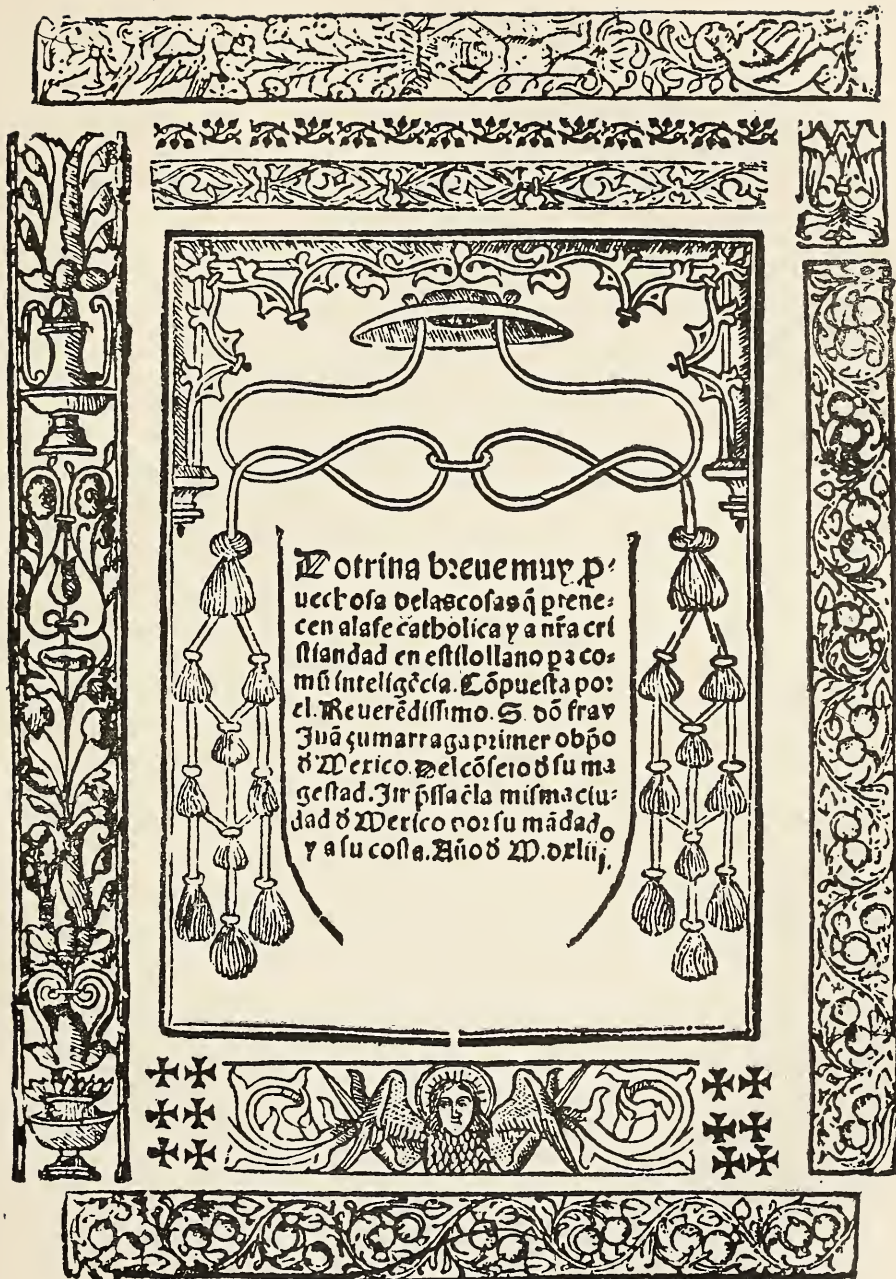 Dotrina breue muy p̱-
uechosa delascosas q̃ p̱tene-
cen alafe catholica y a nr̃a cri
stiandad en estilo llano p̱a co-
mũ inteligẽcia. Cõpuesta por
el. Reuerẽdissimo. S. dõ fray
Juã çumarraga primer obp̃o
d̃ Mexico. Del cõsejo d̃ su ma
gestad. Impṟssa ẽla misma ciu-
dad d̃ Mexico por su mãdado
y a su costa. Año d̃ M.dxliij.